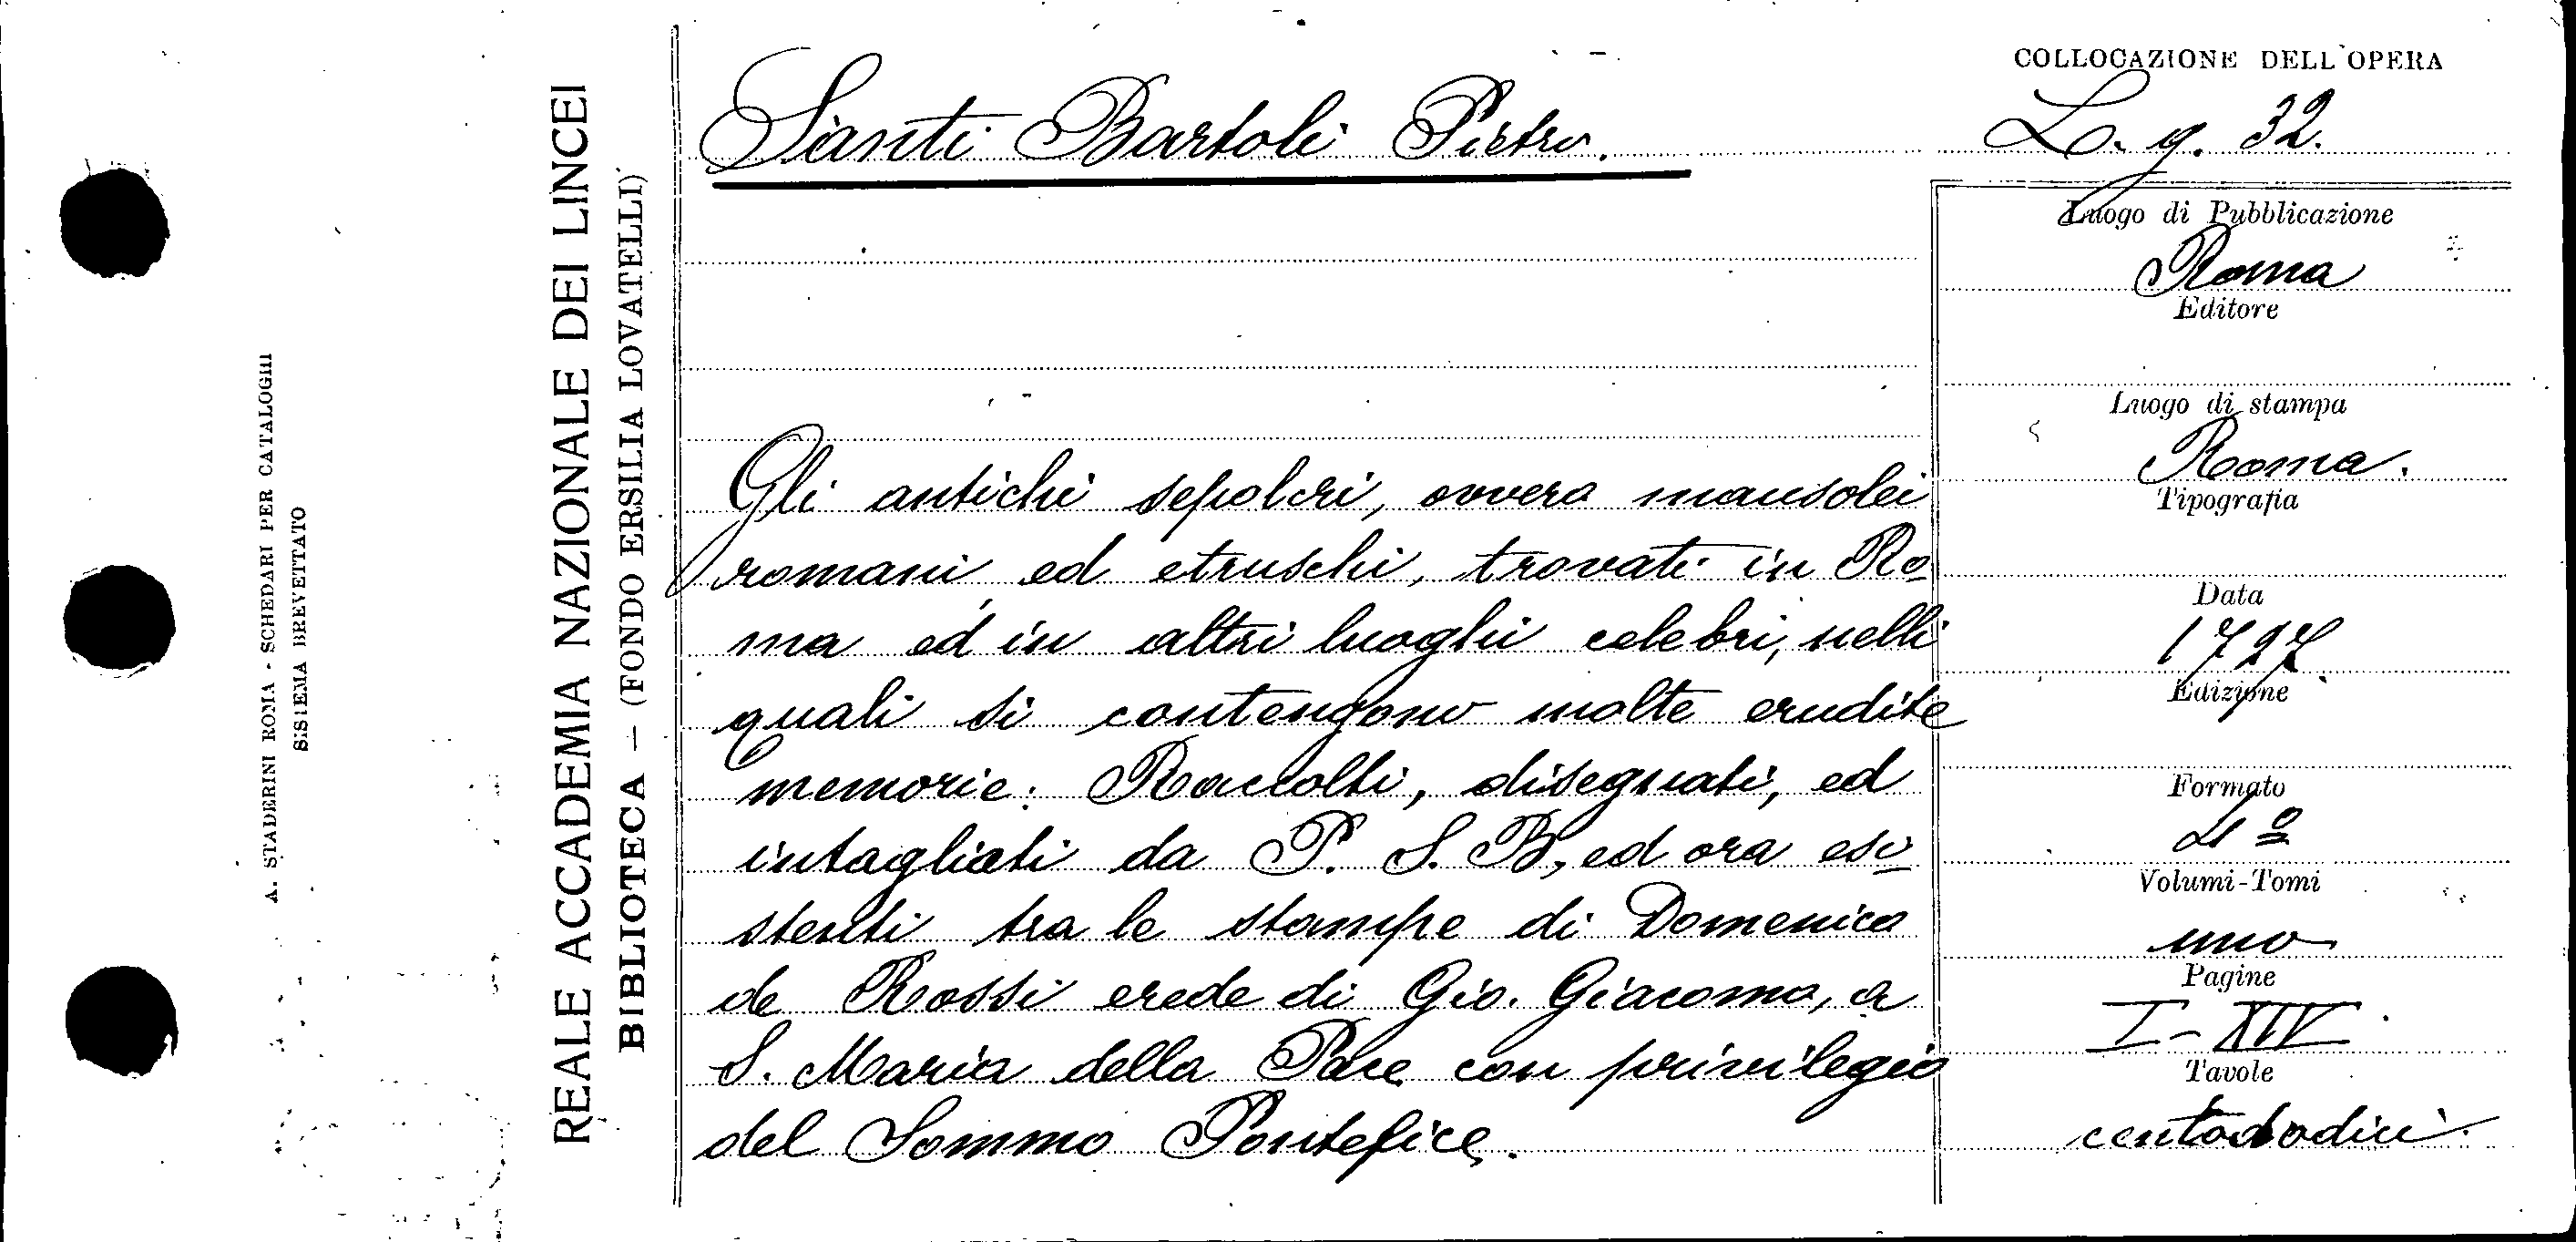 A. STADERINI ROMA - SCHEDARI PER CATALOGHI
SISTEMA BREVETTATO
REALE ACCADEMIA NAZIONALE DEI LINCEI
BIBLIOTECA — (FONDO ERSILIA LOVATELLI)
Santi Bartoli Pietro.
Gli antichi sepolcri, ovvero mausolei
romani ed etruschi, trovati in Ro
ma ed in altri luoghi celebri, nelli
quali si contengono molte erudite
memorie: Raccolti, disegnati, ed
intagliati da P. S. B, ed ora esi
stenti tra le stampe di Domenico
de Rossi erede di Gio. Giacomo, a
S. Maria della Pace con privilegio
del Sommo Pontefice.
COLLOCAZIONE DELL'OPERA
L. g. 32.
Luogo di Pubblicazione
Roma
Editore
Luogo di stampa
Roma.
Tipografia
Data
1727
Edizione
Formato
4º
Volumi-Tomi
uno
Pagine
I-XIV
Tavole
centododici.